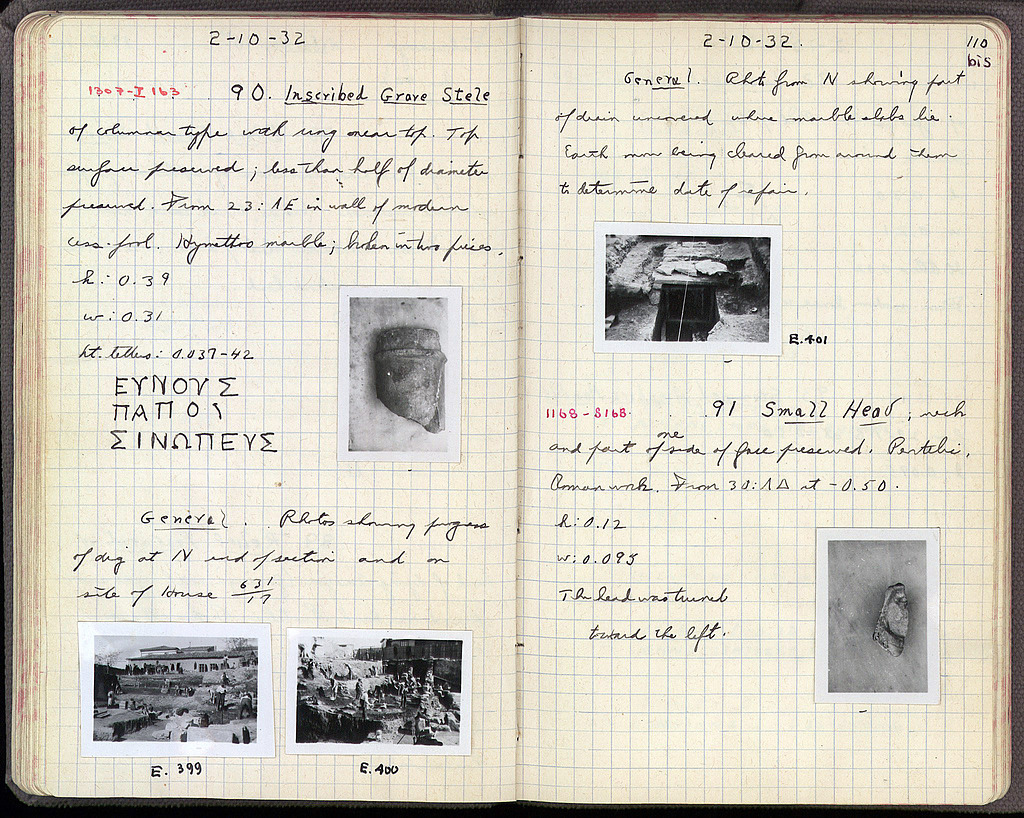 2-10-32
1307-I 163 90. Inscribed Grave Stele
of columnar type with ring near top. Top
surface preserved; less than half of diameter
preserved. From 23:ΛΕ in wall of modern
cess-pool. Hymettos marble; broken in two pieces.
h: 0.39
w: 0.31
ht. letters: 0.037-42
ΕΥΝΟΥΣ
ΠΑΠΟΥ
ΣΙΝΩΠΕΥΣ
General. Photos showing progress
of dig at N end of section and on
site of House 631/17
E. 399
E. 400
2-10-32.
110
bis
General. Photo from N showing part
of drain uncovered where marble slabs lie.
Earth now being cleared from around them
to determine date of repair.
E.401
1168-S168. 91 Small Head; neck
and part of one side of face preserved. Pentelic.
Roman work. From 30:ΛΔ at -0.50.
h: 0.12
w: 0.095
The head was turned
toward the left.